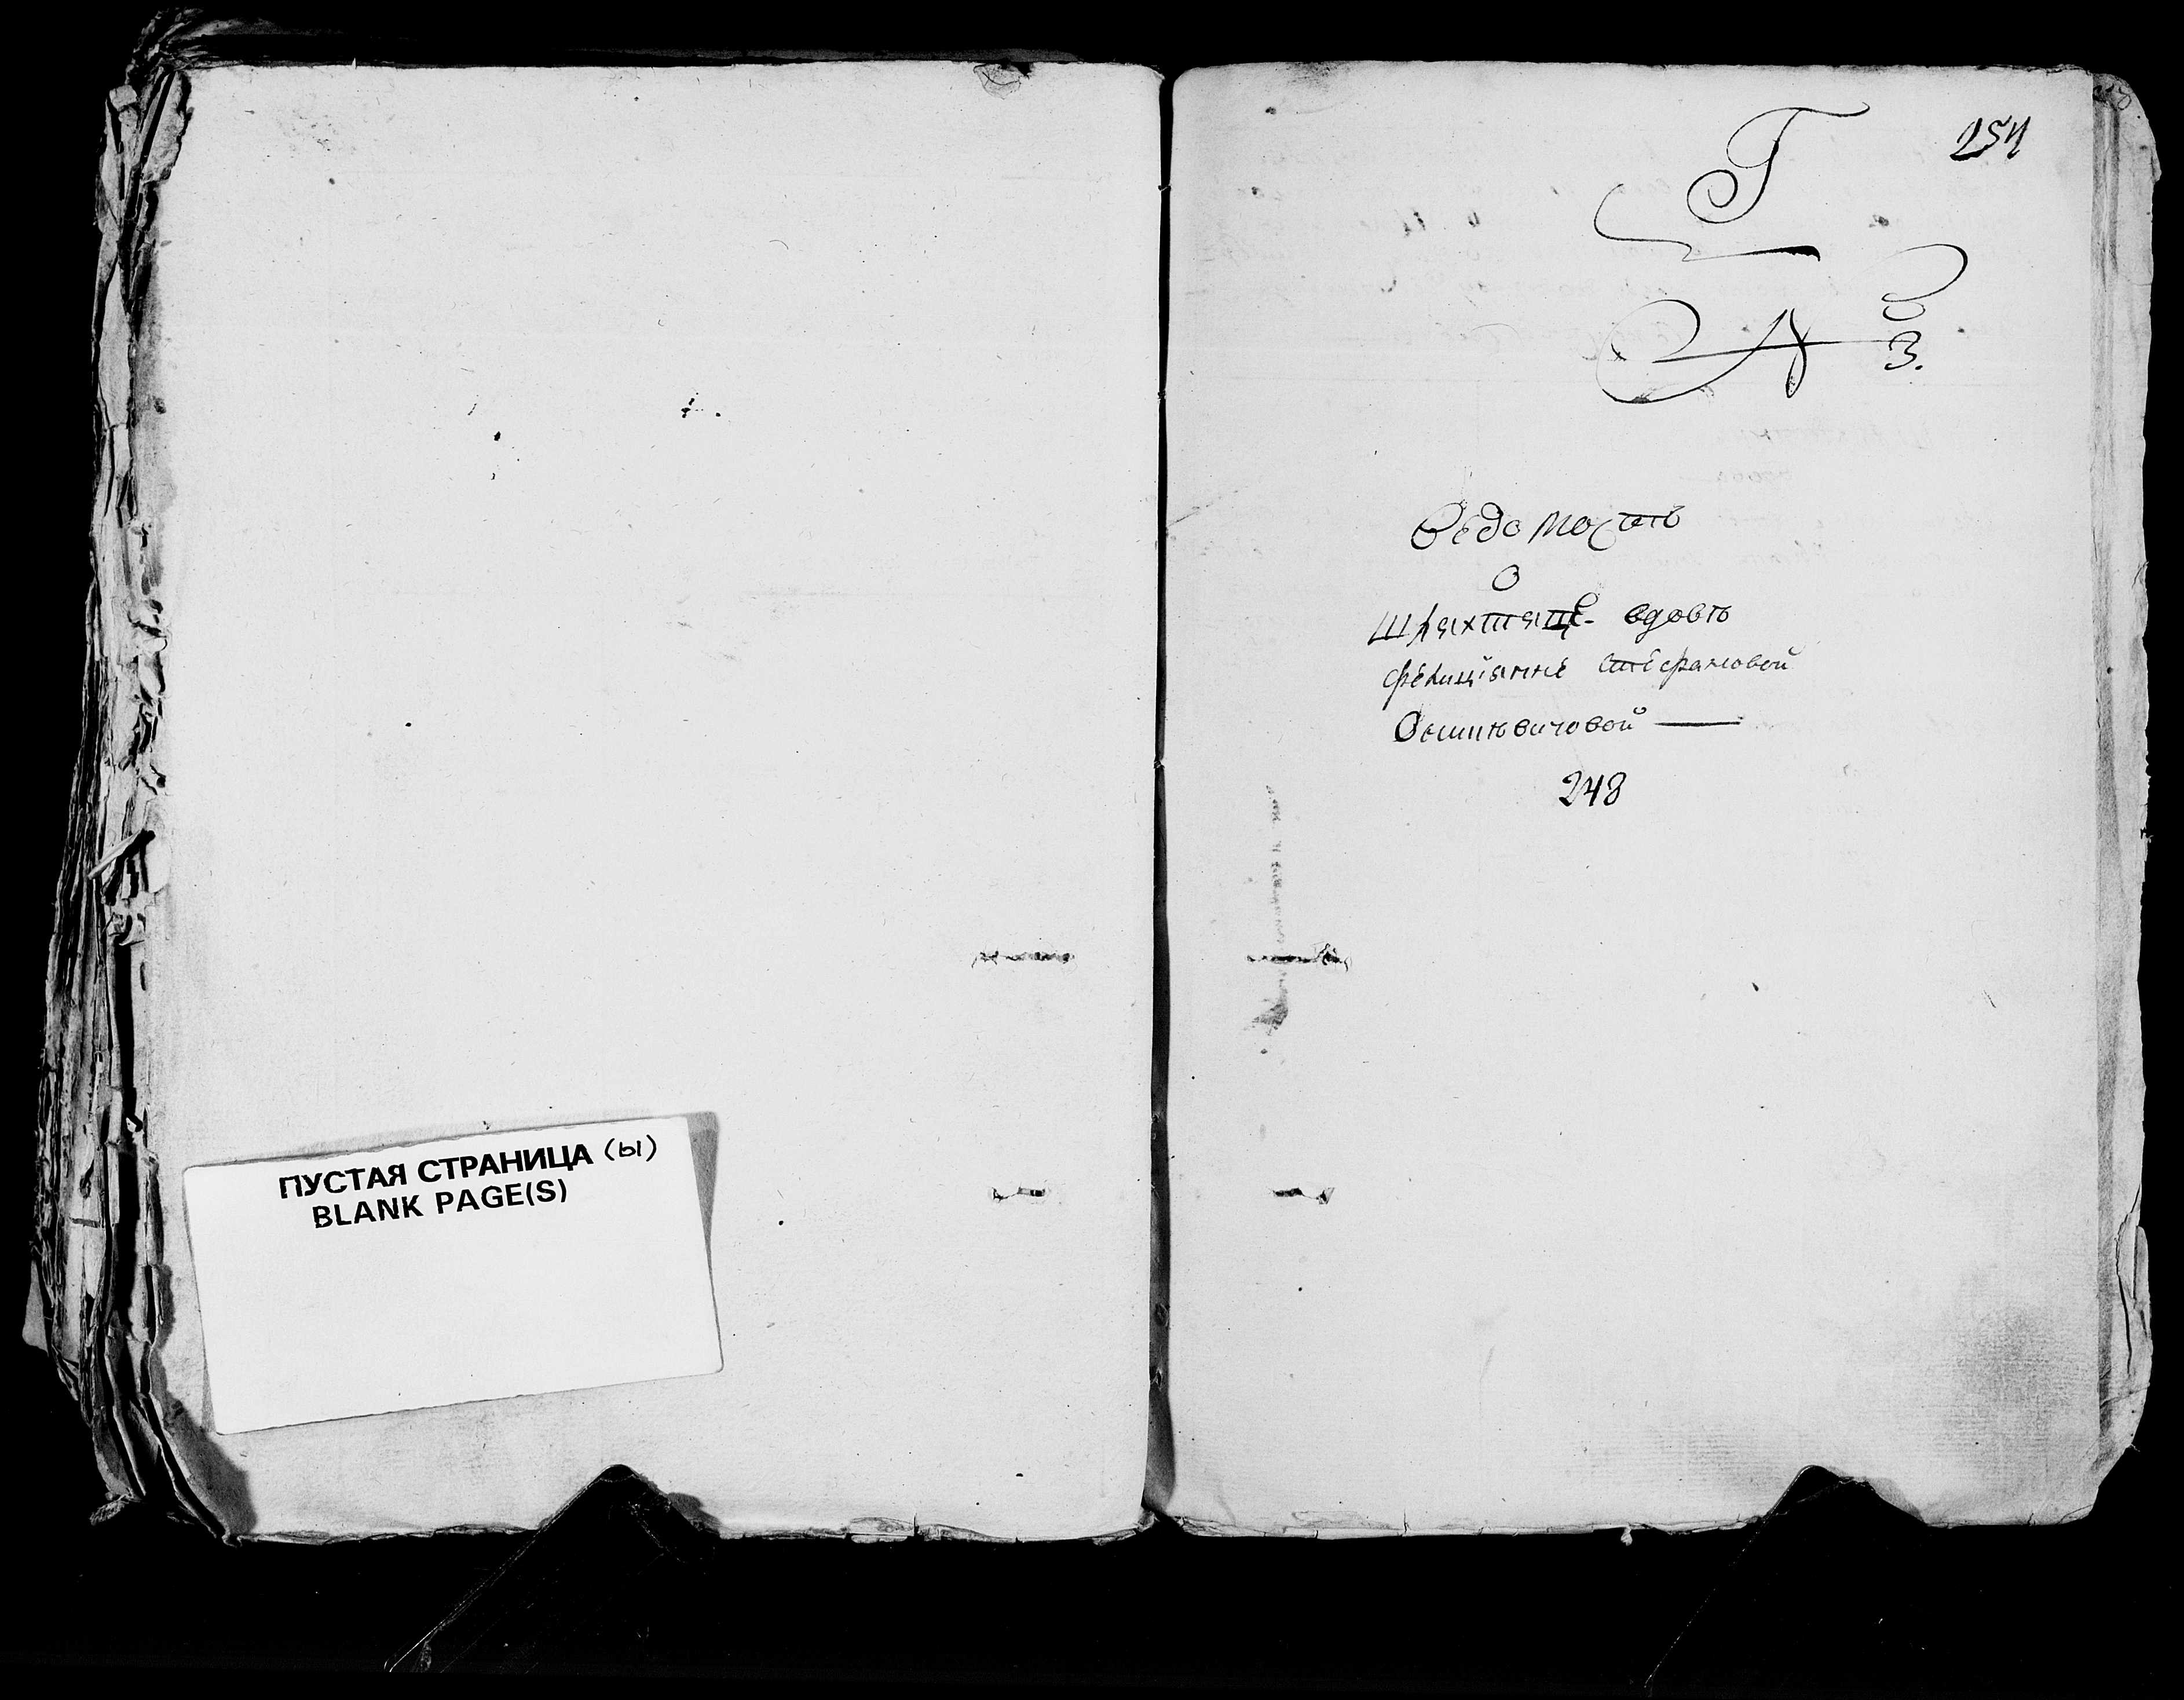 ПУСТАЯ СТРАНИЦА (ы)
BLANK PAGE(S)
254
Г
А 3.
Ведомость
о
Шляхтяще вдовѣ
фелицiянне Стефановой
Осиповичовой —
248